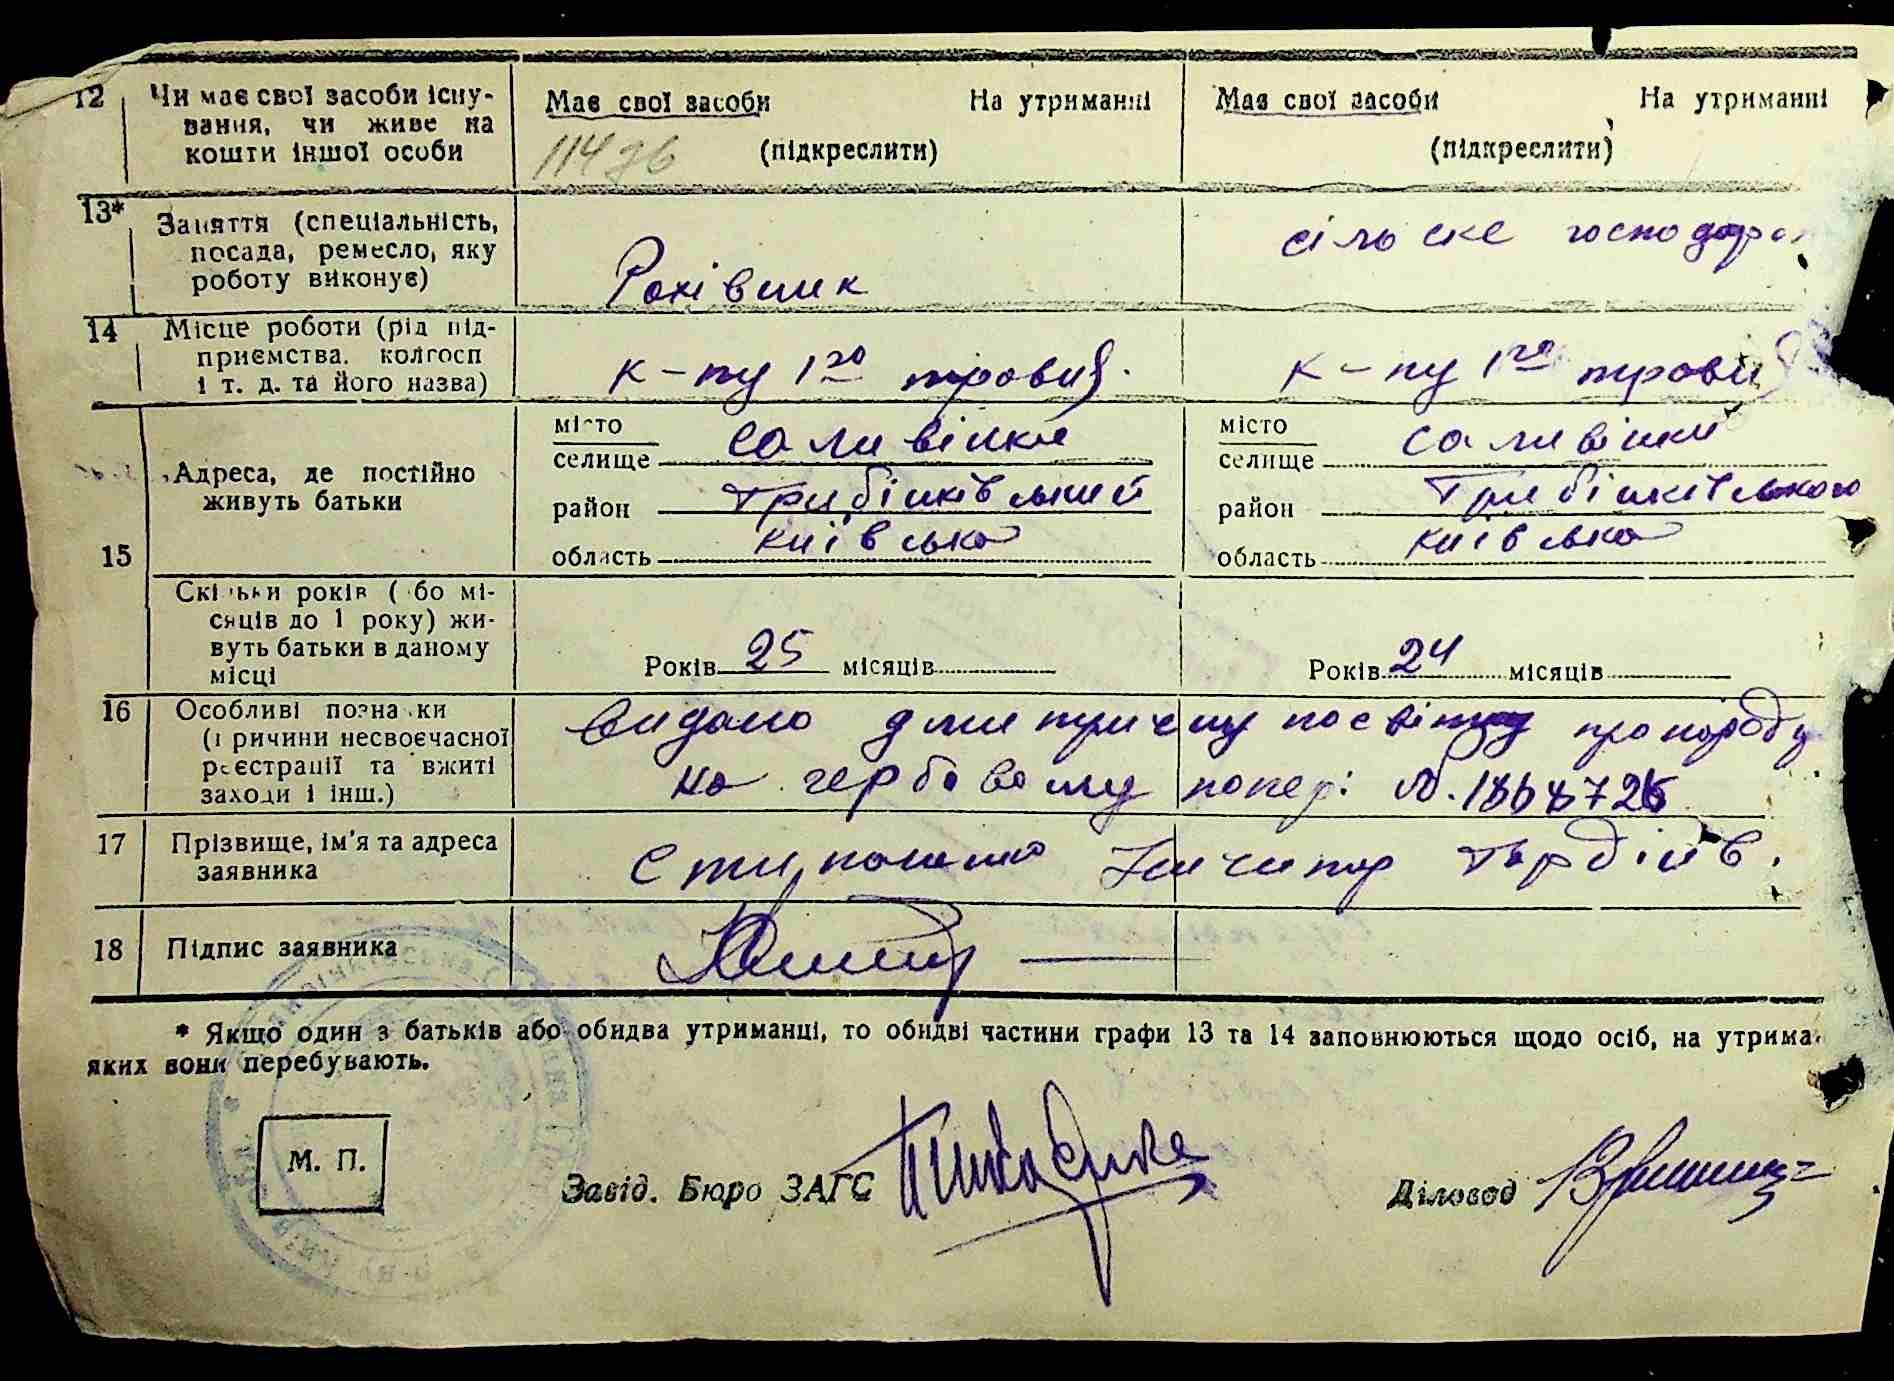 12 Чи має свої засоби існу-
вання, чи живе на
кошти іншої особи
Має свої засоби На утриманні
(підкреслити)
11476
Має свої засоби На утриманні
(підкреслити)
13* Заняття (спеціальність,
посада, ремесло, яку
роботу виконує)
сільське господар
14 Місце роботи (рід під-
приємства, колгосп
і т. д. та його назва)
к-пу 1го травня
к-пу 1го травня
15 Адреса, де постійно
живуть батьки
місто
селище саливінки
район Гребінківський
область київська
місто
селище саливінки
район Гребінківського
область київська
Скільки років (або мі-
сяців до 1 року) жи-
вуть батьки в даному
місці
Років 25 місяців
Років 24 місяців
16 Особливі познаки
(причини несвоєчасної
реєстрації та вжиті
заходи і інш.)
видано посвітку про народ
на гербовому папері №
17 Прізвище, ім'я та адреса
заявника
18 Підпис заявника
* Якщо один з батьків або обидва утриманці, то обидві частини графи 13 та 14 заповнюються щодо осіб, на утрима
яких вони перебувають.
М. П.
Завід. Бюро ЗАГС
Діловод